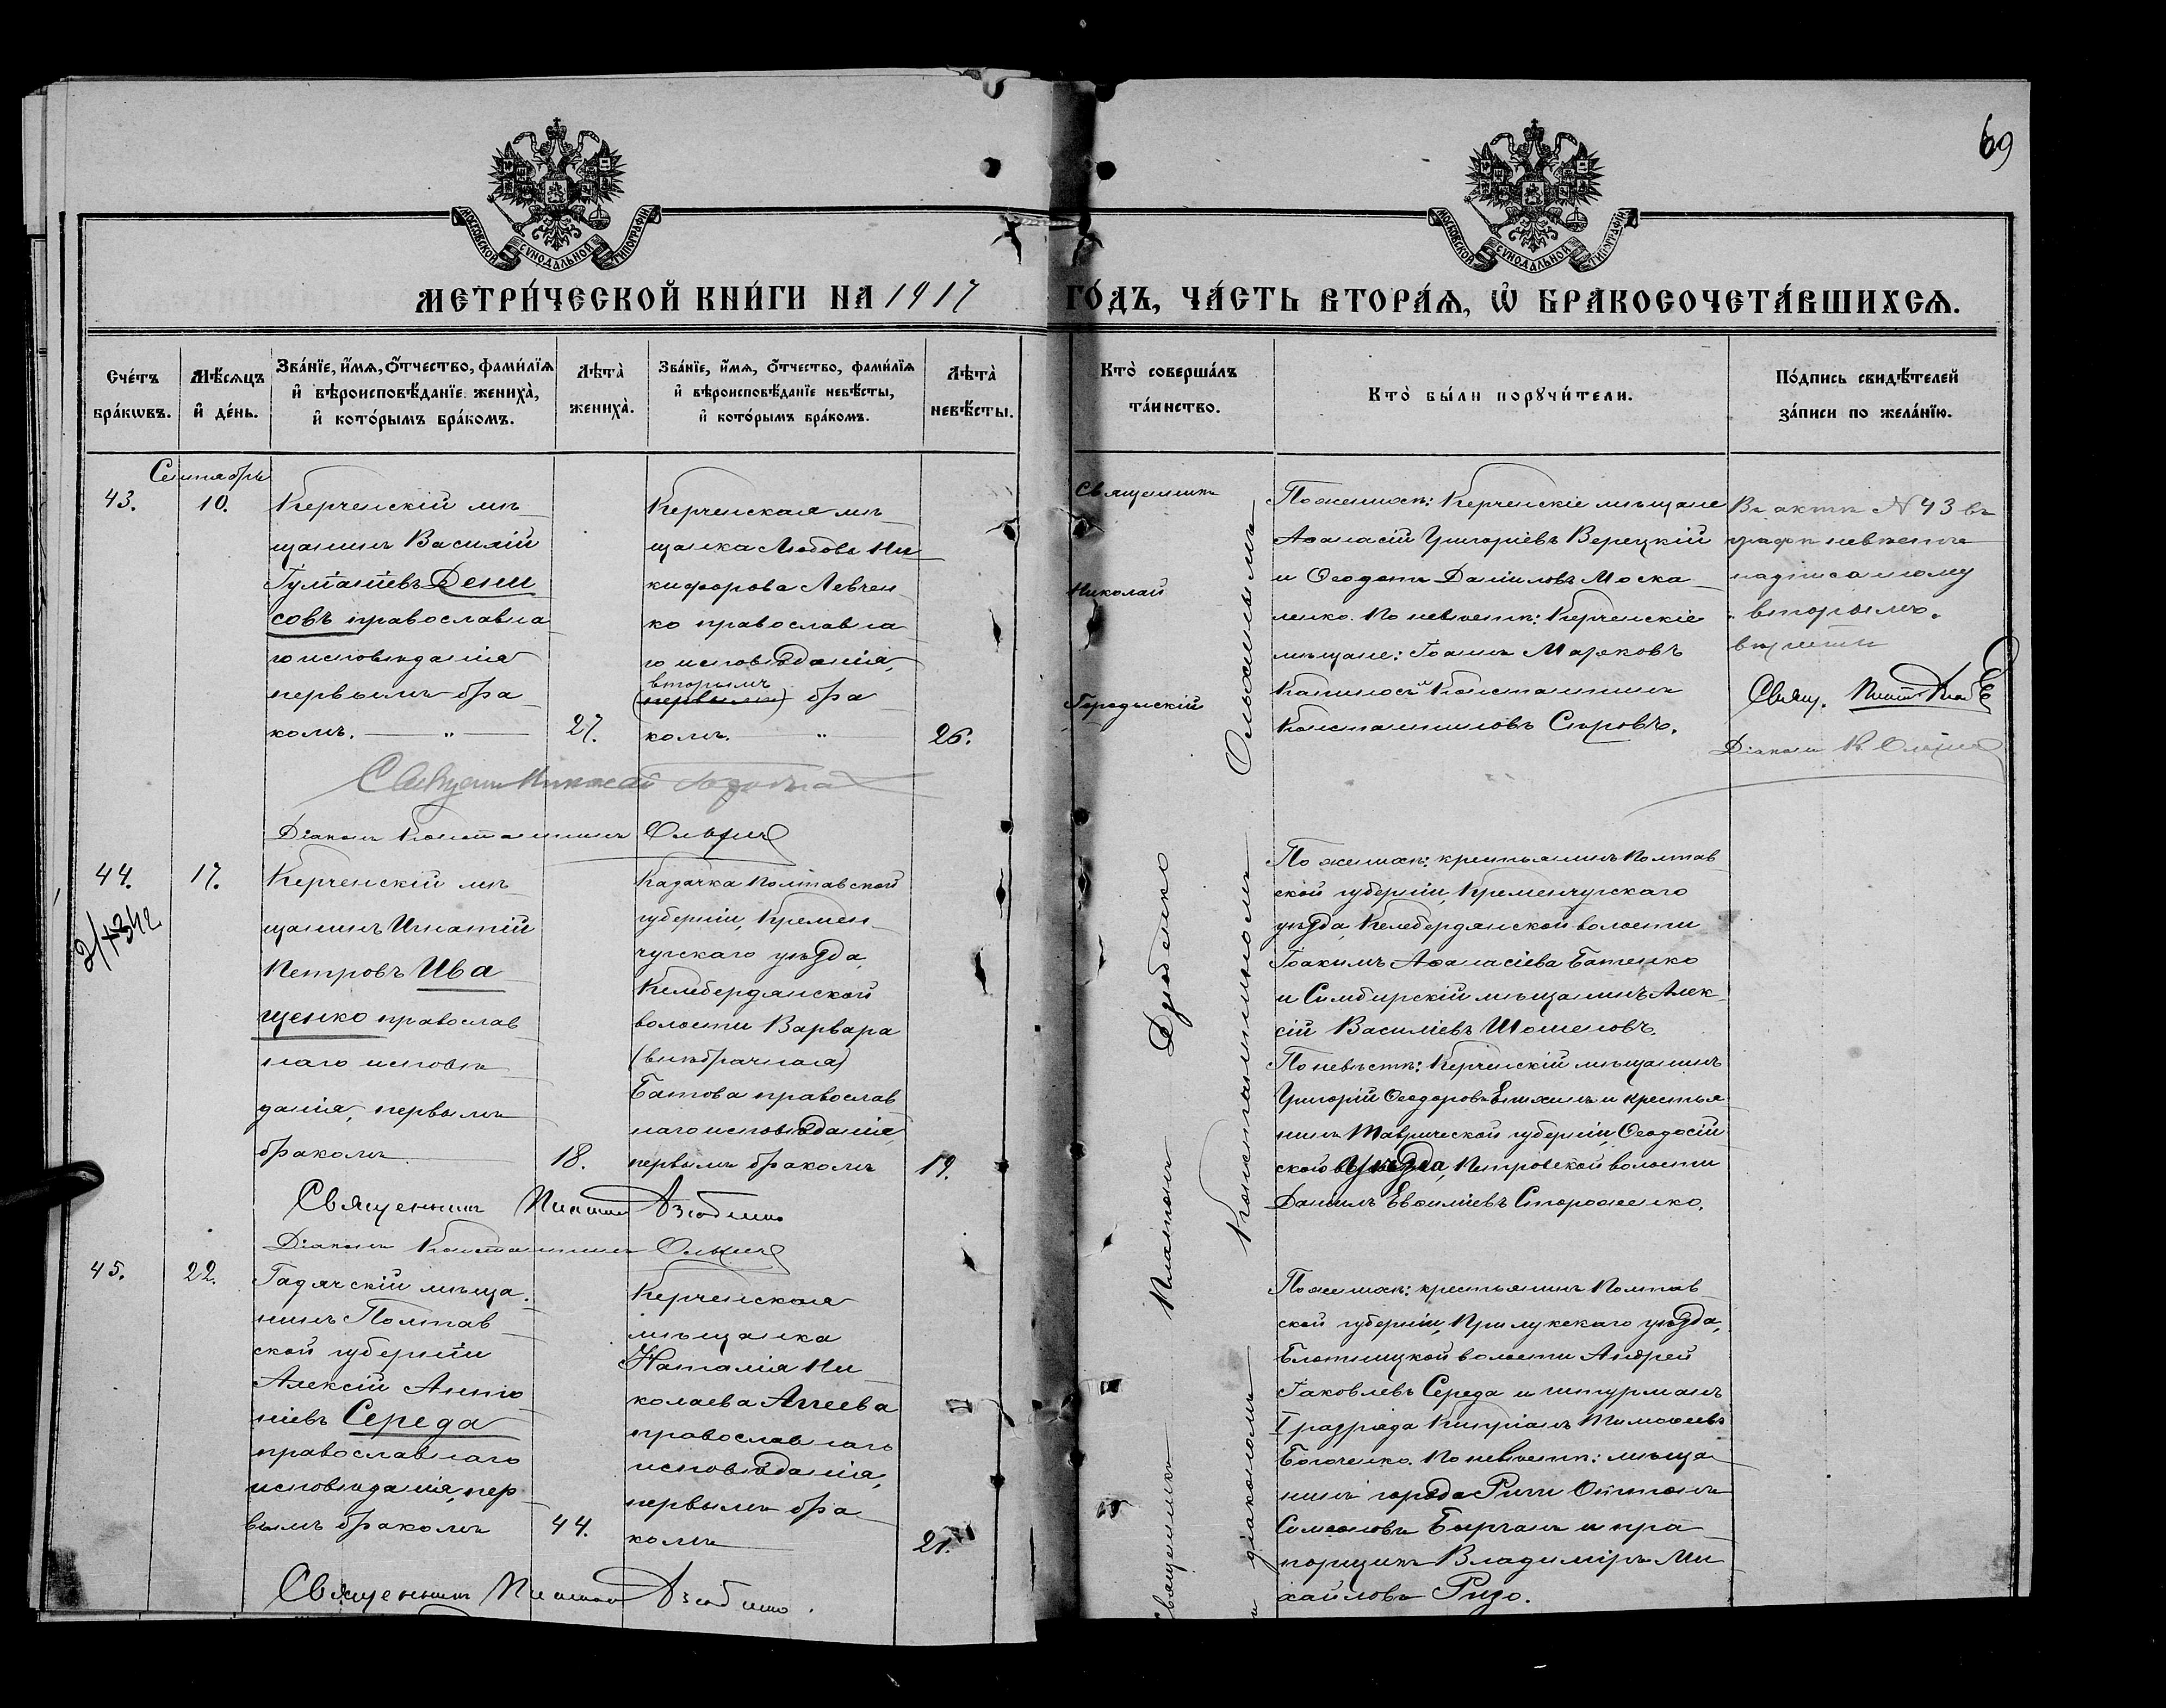 69
МОСКОВСКОЙ СѴНОДАЛЬНОЙ ТИПОГРАФІИ
МОСКОВСКОЙ СѴНОДАЛЬНОЙ ТИПОГРАФІИ
МЕТРИ́ЧЕСКОЙ КНИ́ГИ НА 1917 ГО́ДЪ, ЧА́СТЬ ВТОРА́Я, Ѽ БРАКОСОЧЕТА́ВШИХСЯ.
Сче́тъ
бра́кѡвъ.
Мѣ́сяцъ
и҆ де́нь.
Зва́нїе, и҆́мя, ѻ҆́тчество, фами́лїя
и҆ вѣроисповѣ́данїе жениха̀,
и҆ кото́рымъ бра́комъ.
Лѣта̀
жениха̀.
Зва́нїе, и҆́мя, ѻ҆́тчество, фами́лїя
и҆ вѣроисповѣ́данїе невѣ́сты,
и҆ кото́рымъ бра́комъ.
Лѣта̀
невѣ́сты.
Кто̀ соверша́лъ
та́инство.
Кто̀ бы́ли порꙋчи́тели.
По́дпись свидѣ́телей
за́писи по жела́нїю.
Сентябрь
43.
10.
Керченскій мѣ
щанинъ Василій
Денн
совъ православна
го исповѣданія
первымъ бра
комъ. — " —
27.
Керченская мѣ
щанка Любовь Ни
кифорова Левчен
ко православна
го исповѣданія,
вторымъ
(первымъ) бра
комъ. "
26.
Священникъ
Николай
Городыскій
По женихѣ: Керченскіе мѣщане
Аѳанасій Григоріевъ Верецкій
и Ѳеодотъ Даніиловъ Моска
ленко. По невѣстѣ: Керченскіе
мѣщане: Іоаннъ Марковъ
Константинъ
Константиновъ
Въ актѣ N 43 въ
графѣ невѣста
надписанному
"вторымъ"
вѣрить
Свящ.
Діаконъ К. Ольхинъ
Священ Николай
Діаконъ Константинъ Ольхинъ
44.
17.
2/
Керченскій мѣ
щанинъ Игнатій
Петровъ Ива
щенко православ
наго исповѣ
данія, первымъ
бракомъ
18.
Казачка Полтавской
губерніи, Кремен
чугскаго уѣзда,
Келебердянской
волости Варвара
(внѣбрачная)
Батова православ
наго исповѣданія,
первымъ бракомъ
19.
По женихѣ: крестьянинъ Полтав
ской губерніи, Кременчугскаго
уѣзда, Келебердянской волости
Іоакимъ Аѳанасіева Батенко
и Симбирскій мѣщанинъ Алек
сій Василіевъ Шошеновъ.
По невѣстѣ: Керченскій мѣщанинъ
Григорій Ѳеодоровъ Енихинъ и крестья
нинъ Таврической губерніи, Ѳеодосій
ской уѣзда, Петровской волости
Даніилъ Евѳиміевъ Стороженко.
Священникъ Платонъ Дзюбенко
Діаконъ Константинъ Ольхинъ
45.
22.
Гадячскій мѣща
нинъ Полтав
ской губерніи
Алексій Анто
ніевъ Середа
православнаго
исповѣданія, пер
вымъ бракомъ
44.
Керченская
мѣщанка
Наталія Ни
колаева Агеева
православнаго
исповѣданія,
первымъ бра
комъ
21.
По женихѣ: крестьянинъ Полтав
ской губерніи, Прилукскаго уѣзда,
волости Андрей
Іаковлевъ Середа и штурманъ
I разряда Кипріанъ Тимоѳеевъ
По невѣстѣ: мѣща
нинъ города Риги
Симеоновъ и пра
порщикъ Владиміръ Ми
хайловъ Ризо.
Священникъ Платонъ Дзюбенко
Священникъ Платонъ Дзюбенко
и діакономъ Константиномъ Ольхинымъ